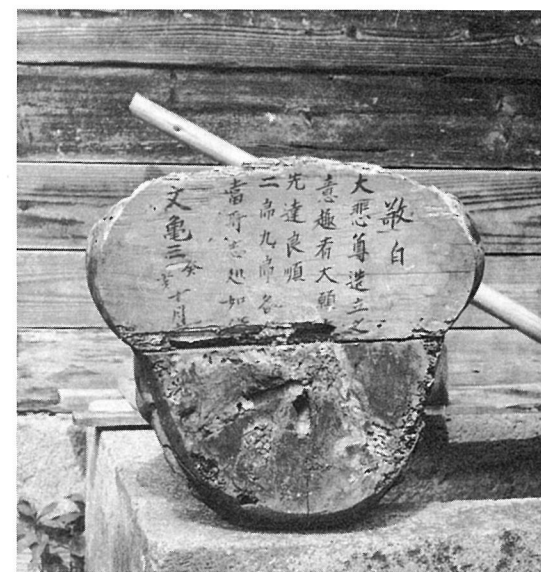 敬白
大悲尊造立之
意趣者大願
先達良順
二帝九帝各
當所志処如
文亀三癸亥十月